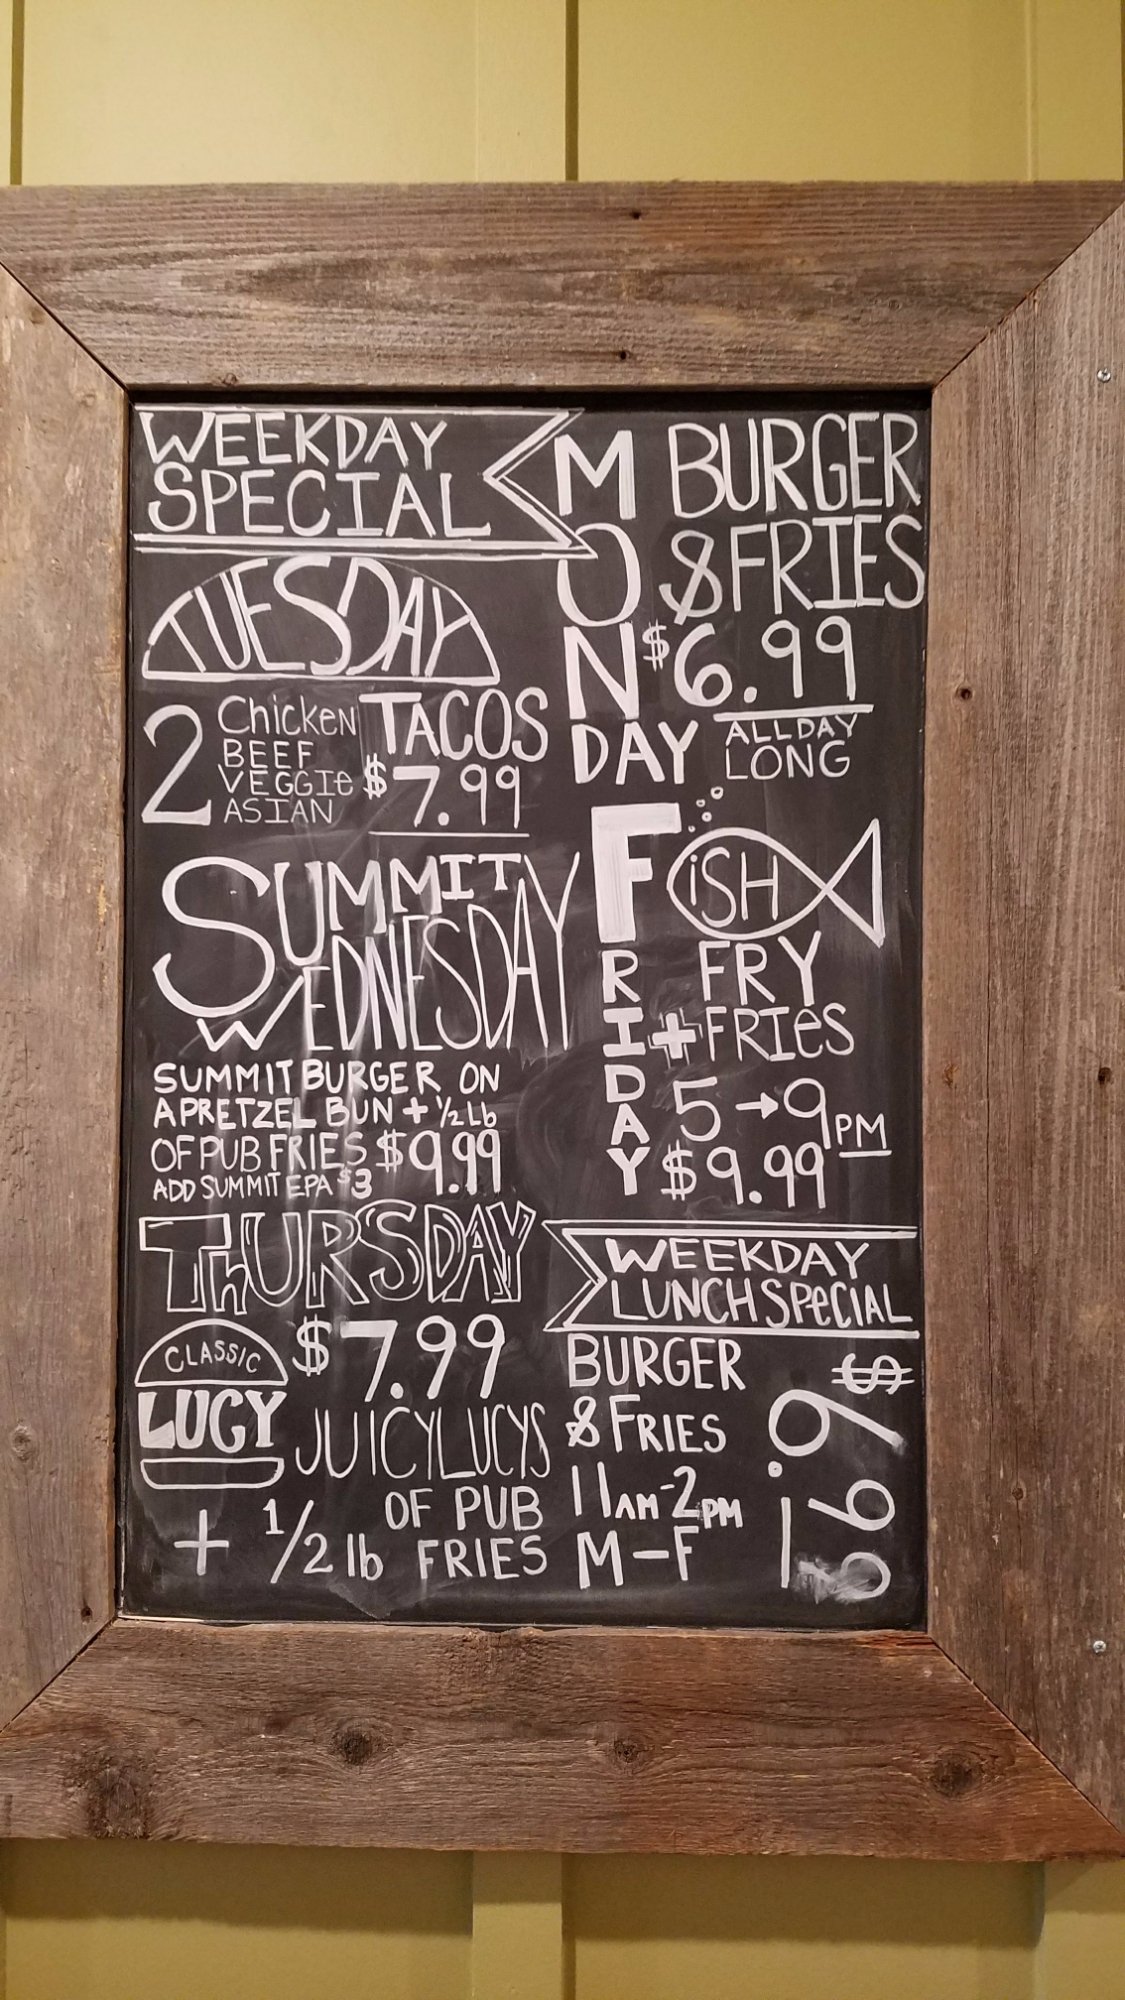 WEEKDAY
SPECIAL
MONDAY
BURGER
& FRIES
$6.99
ALL DAY
LONG
TUESDAY
2 Chicken
BEEF
VEGGIe
ASIAN
TACOS
$7.99
SUMMIT
WEDNESDAY
SUMMIT BURGER ON
A PRETZEL BUN + 1/2 Lb
OF PUB FRIES $9.99
ADD SUMMIT EPA $3
FRIDAY
FiSH
FRY
+ FRIeS
5 → 9PM
$9.99
THURSDAY
CLASSIC
LUCY
$7.99
JUICY LUCYS
+ 1/2 lb OF PUB
FRIES
WEEKDAY
LUNCH SPeCIAL
BURGER
& FRIES
11AM-2PM
M-F
$6.99